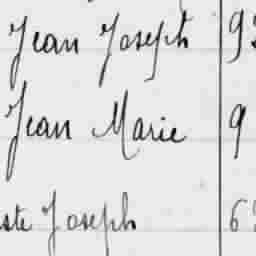 Jean Joseph 93
Jean Marie 9
ste Joseph 6